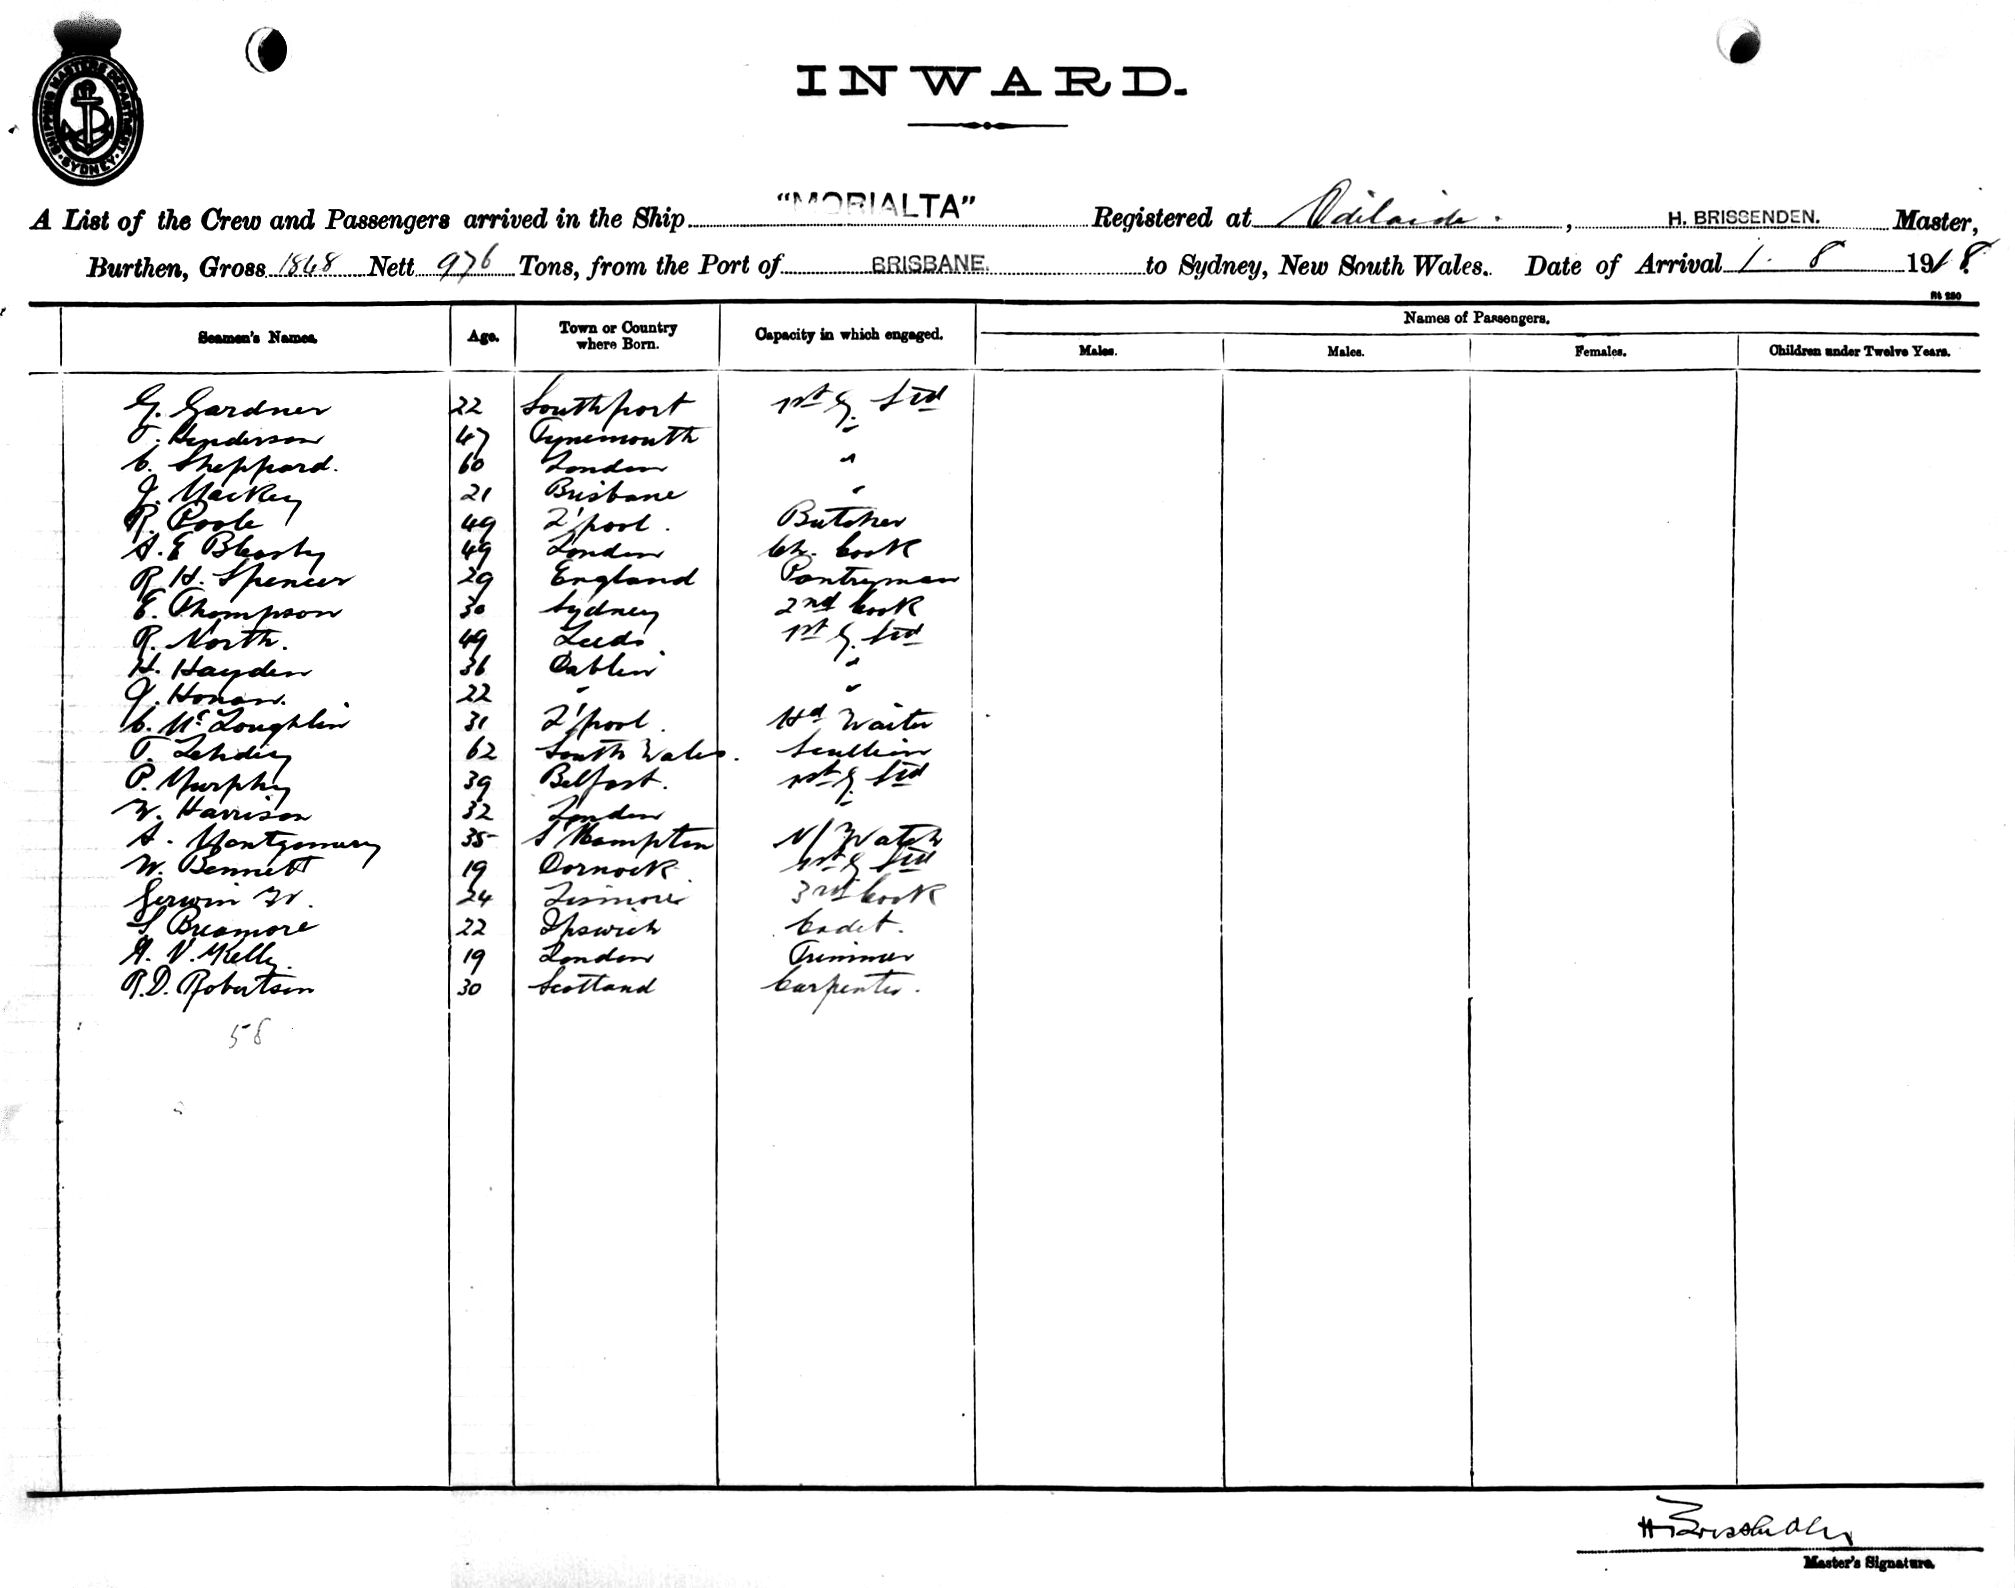 SHIPPING MASTERS DEPARTMENT · SYDNEY ·
INWARD.
A List of the Crew and Passengers arrived in the Ship "MORIALTA" Registered at Adelaide. , H. BRISSENDEN. Master,
Burthen, Gross 1848 Nett 976 Tons, from the Port of BRISBANE. to Sydney, New South Wales. Date of Arrival 1. 8 1918
Names of Passengers.
Seamen's Names. Age. Town or Country where Born. Capacity in which engaged. Males. Males. Females. Children under Twelve Years.
G. Gardner 22 Southport 1st G. Std
T. Henderson 47 Tynemouth "
C. Sheppard. 60 London "
J. Mackey 21 Brisbane "
R. Poole 49 L'pool. Butcher
A. E 49 London Ch. Cook
R. H. Spencer 29 England Pantryman
E. Thompson 30 Sydney 2nd Cook
R. North. 49 Leeds 1st G. Std
H. Hayden 36 Dublin "
J. Honan. 22 " "
C. McLoughlin 31 L'pool. Hd Waiter
T. 62 South Wales. Scullion
P. Murphy 39 Belfast. 1st G. Std
W. Harrison 32 London "
A. Montgomery 35 S'Hampton N/Watch
W. Bennett 19 Dornock 1st G. Std
Gerwin W. 24 Lismore 3rd Cook
S Breamore 22 Ipswich Cadet.
H. V. Kelly. 19 London Trimmer
R.D. Robertson 30 Scotland Carpenter.
58
H Brissenden
Master's Signature.